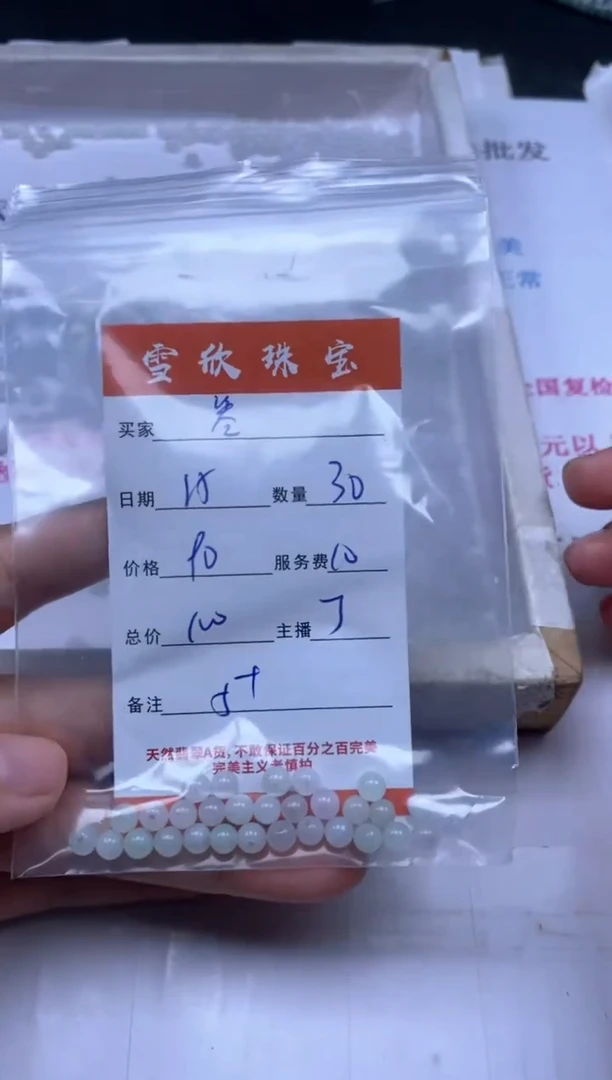 批发
美
正常
全国复检
元以
雪欣珠宝
买家
日期 15 数量 30
价格 90 服务费 10
总价 100 主播 丁
备注 5+
天然翡翠A货,不敢保证百分之百完美
完美主义者慎拍